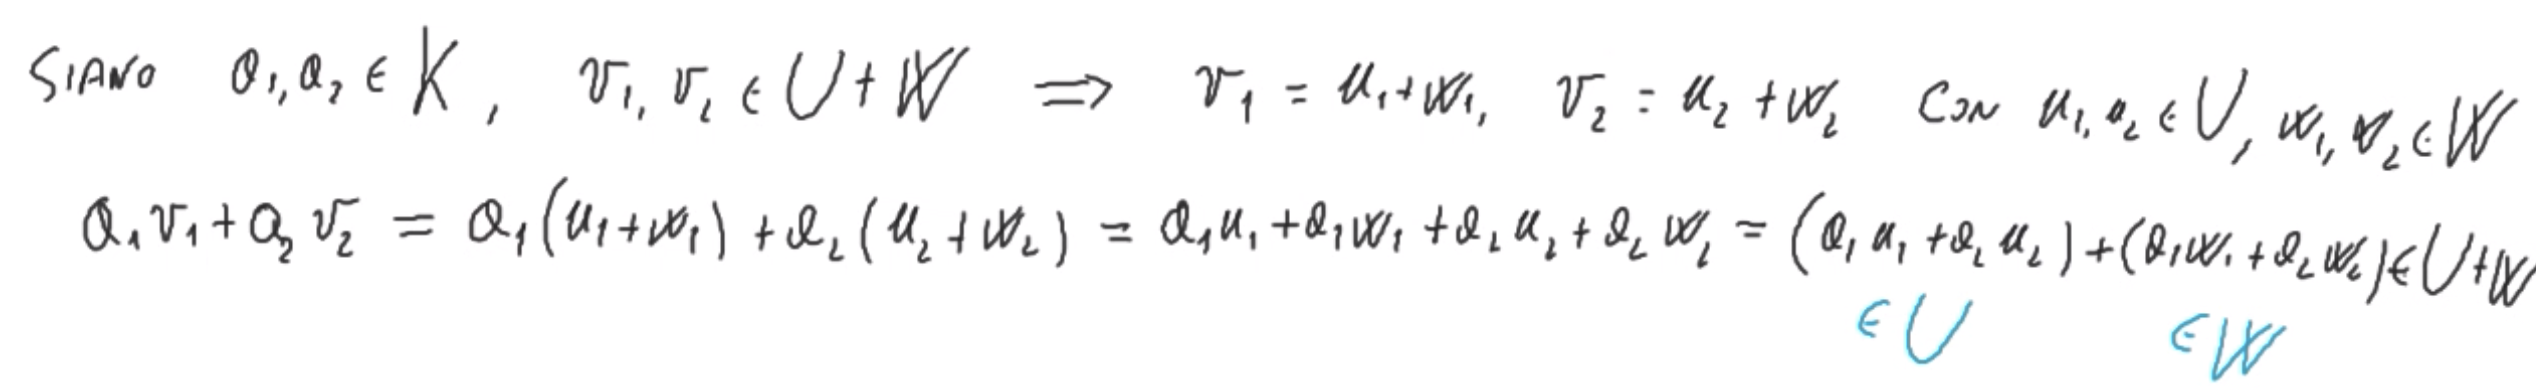 SIANO a₁, a₂ ∈ K, v₁, v₂ ∈ U + W ⟹ v₁ = u₁ + w₁, v₂ = u₂ + w₂ CON u₁, u₂ ∈ U, w₁, w₂ ∈ W
a₁v₁ + a₂v₂ = a₁(u₁ + w₁) + a₂(u₂ + w₂) = a₁u₁ + a₁w₁ + a₂u₂ + a₂w₂ = (a₁u₁ + a₂u₂) + (a₁w₁ + a₂w₂) ∈ U + W
∈ U ∈ W